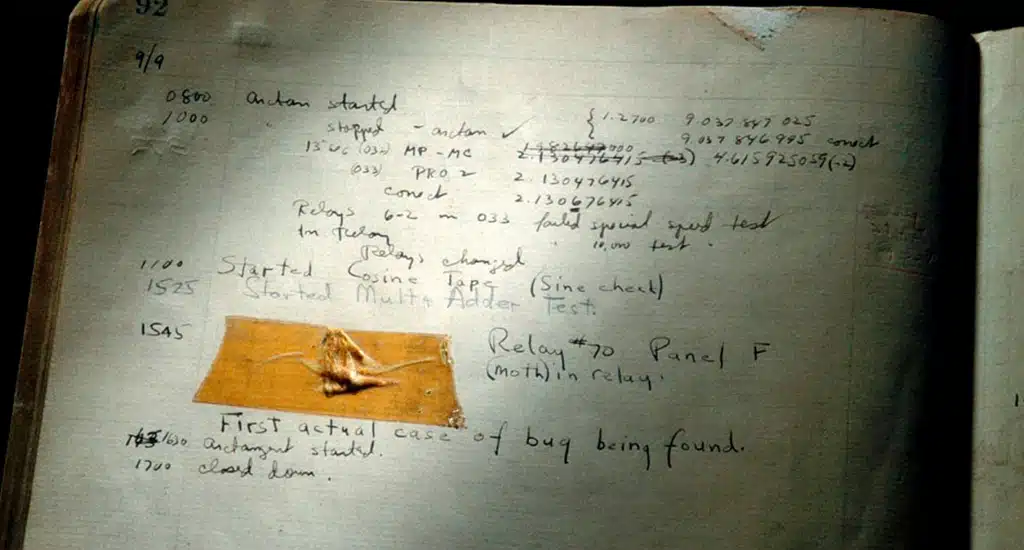 92
9/9
0800 arctan started
1000 " stopped - arctan ✓ { 1.2700 9.037 847 025
9.037 846 995 correct
13"uc (032) MP - MC 2.130476415 (-3) 4.615925059(-2)
(033) PRO 2 2.130476415
correct 2.130676415
Relays 6-2 in 033 failed special speed test
in relay " 10,000 test .
Relays changed
1100 Started Cosine Tape (Sine check)
1525 Started Mult + Adder Test.
1545 Relay #70 Panel F
(moth) in relay.
First actual case of bug being found.
1630 arctangent started.
1700 closed down.